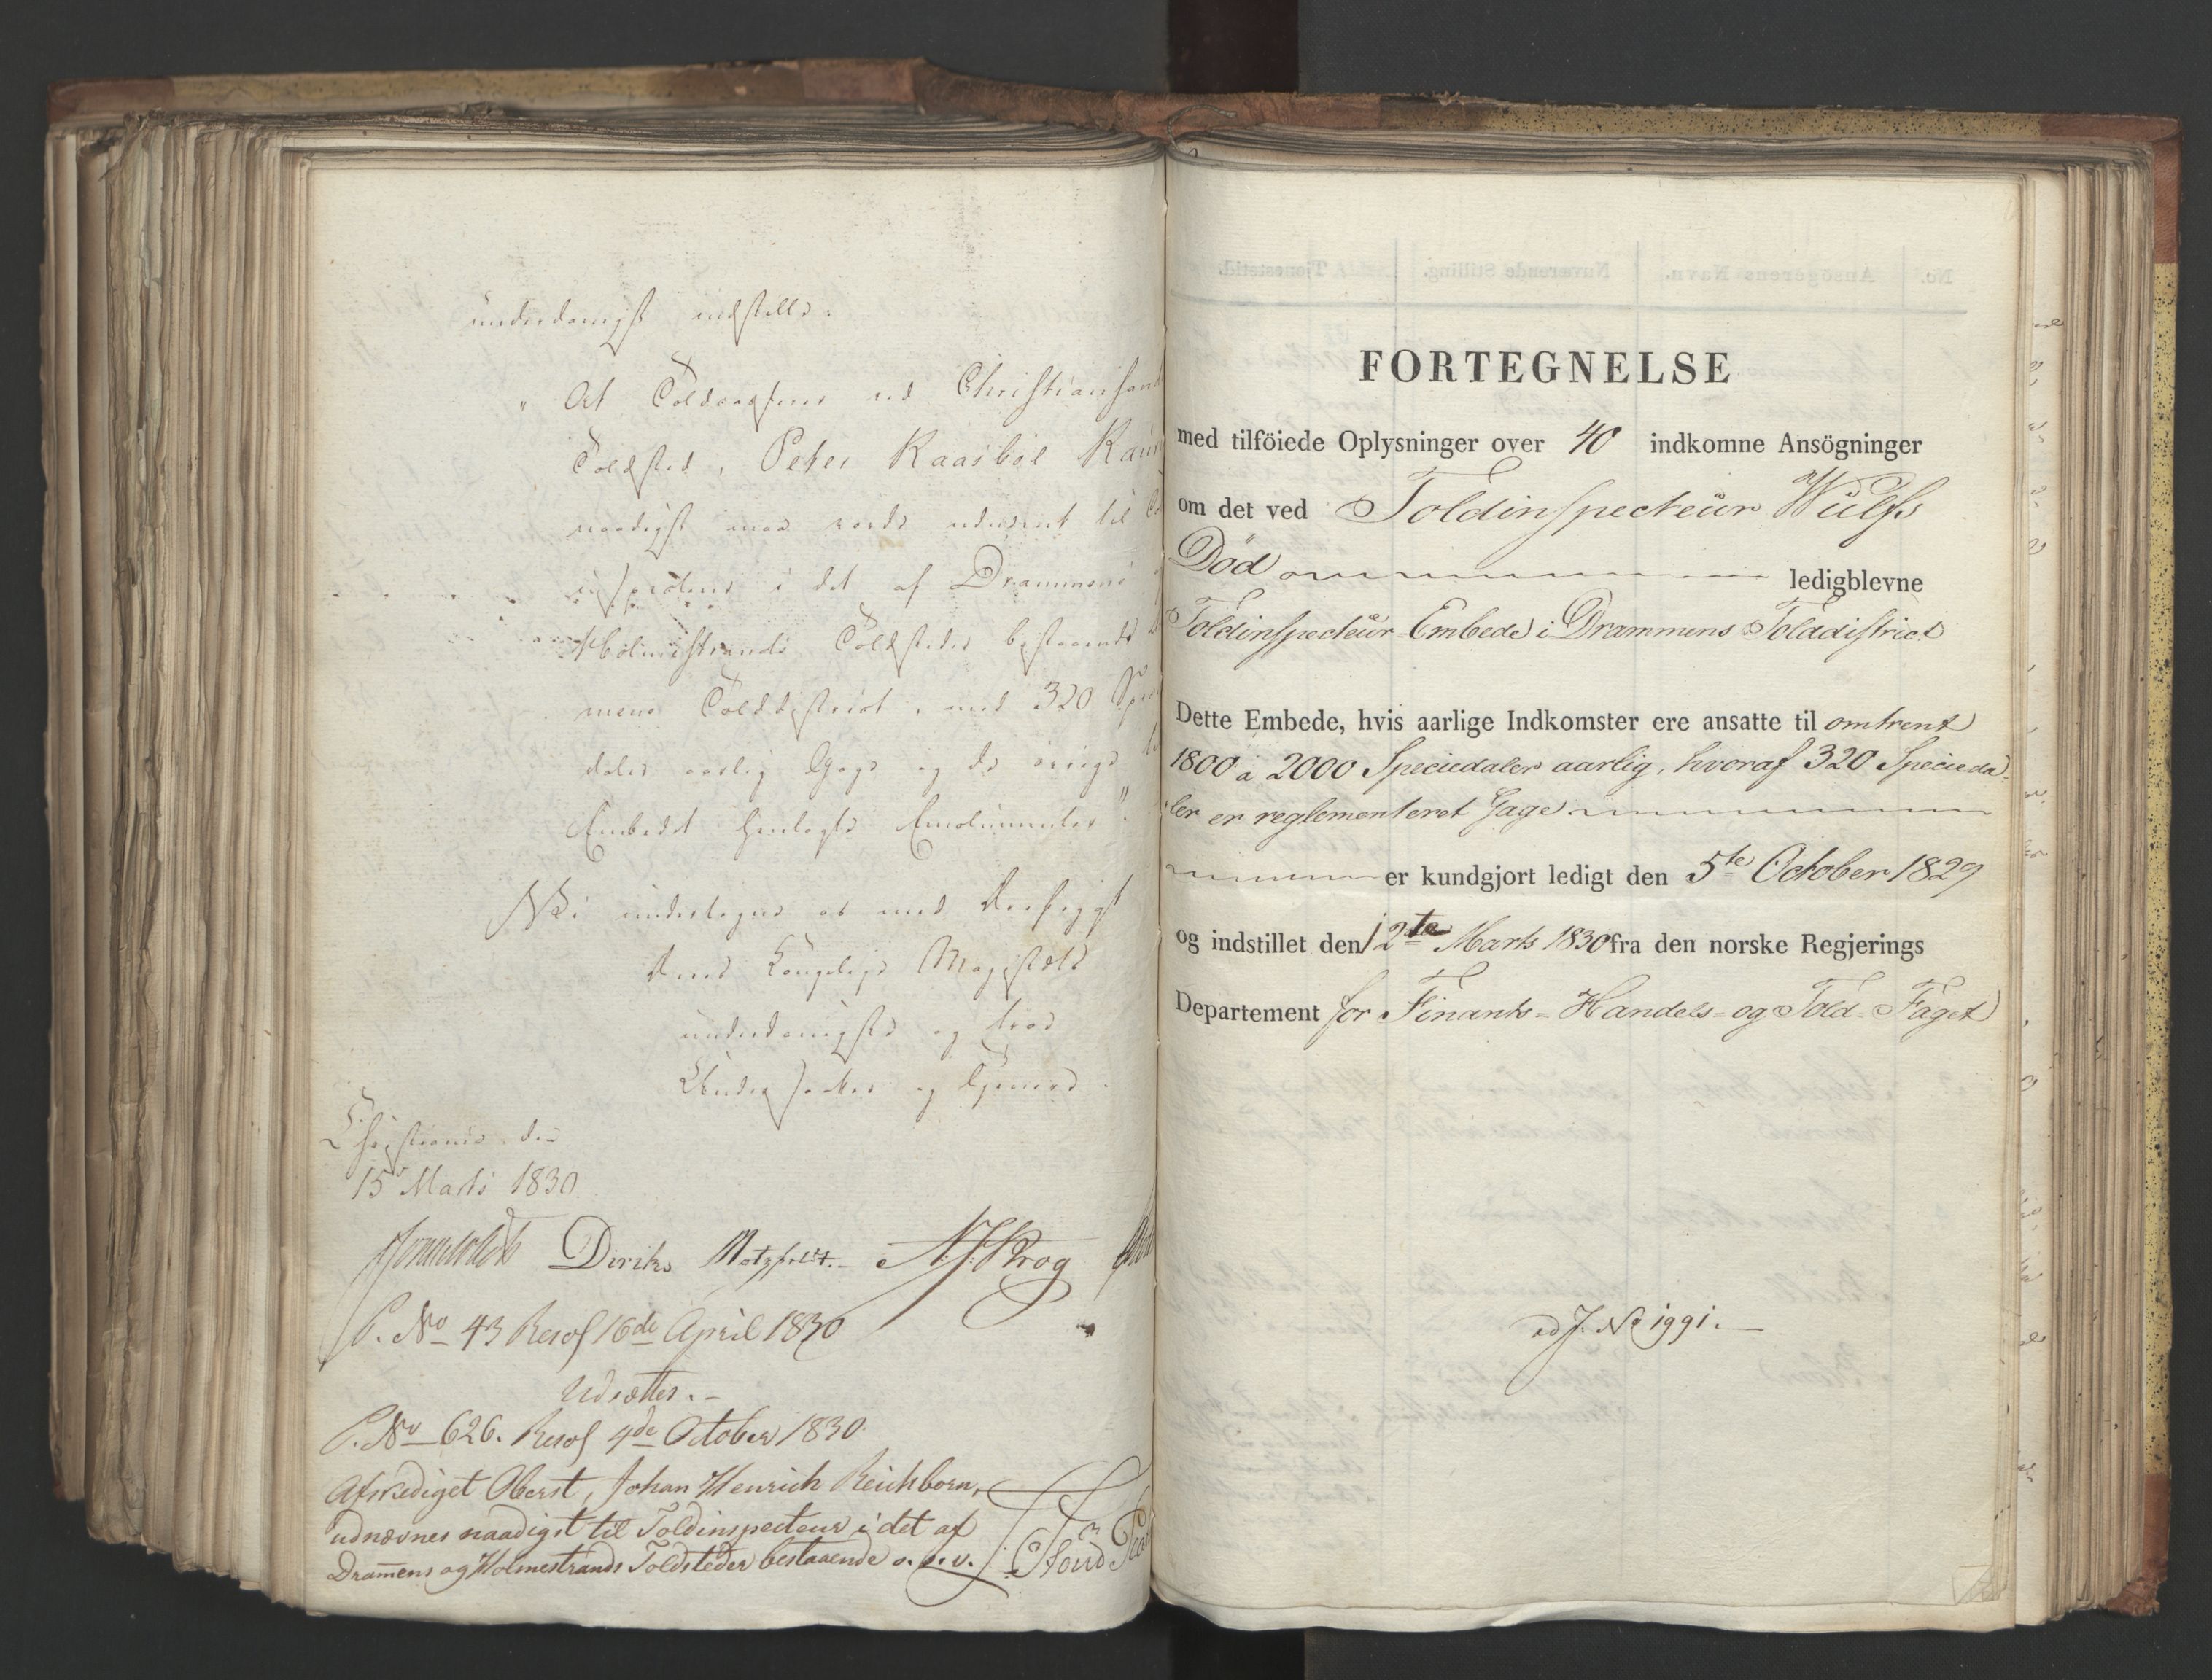 underdanigst indstille:
" At Toldcasserer ved Christiansands
Toldsted, Peter Kaasböl
naadigst maa vorde udnævnt til
inspecteur i det af Drammens
Holmestrands Toldsteder bestaaende
mens Tolddistrict, med 320 Specie
daler aarlig Gage og de övrige
Embedet henlagte Emolumenter".
Vi undertegne os med Ærefrygt
Deres Kongelige Majestæts
underdanigste og troe
Undersaatter og Tjenere.
Christiania den
15 Marts 1830.
Diriks Motzfeldt. N. J. Krog
P. No 43 Resol 16de April 1830
Udsættes.-
P. No 626. Resol 4de October 1830.
Afskediget Oberst, Johan Henrich Reichborn,
udnævnes naadigst til Toldinspecteur i det af
Dram̅ens og Holmestrands Toldsteder bestaaende o. s. v.
FORTEGNELSE
med tilföiede Oplysninger over 40 indkomne Ansögninger
om det ved Toldinspecteur Wulfs
Död ledigblevne
Toldinspecteur-Embede i Drammens Tolddistrict
Dette Embede, hvis aarlige Indkomster ere ansatte til omtrent
1800 a 2000 Speciedaler aarlig, hvoraf 320 Specieda-
ler er reglementeret Gage
er kundgjort ledigt den 5te October 1829
og indstillet den 12te Marts 1830 fra den norske Regjerings
Departement for Finants- Handels- og Told-Faget
ad J. No 1991.